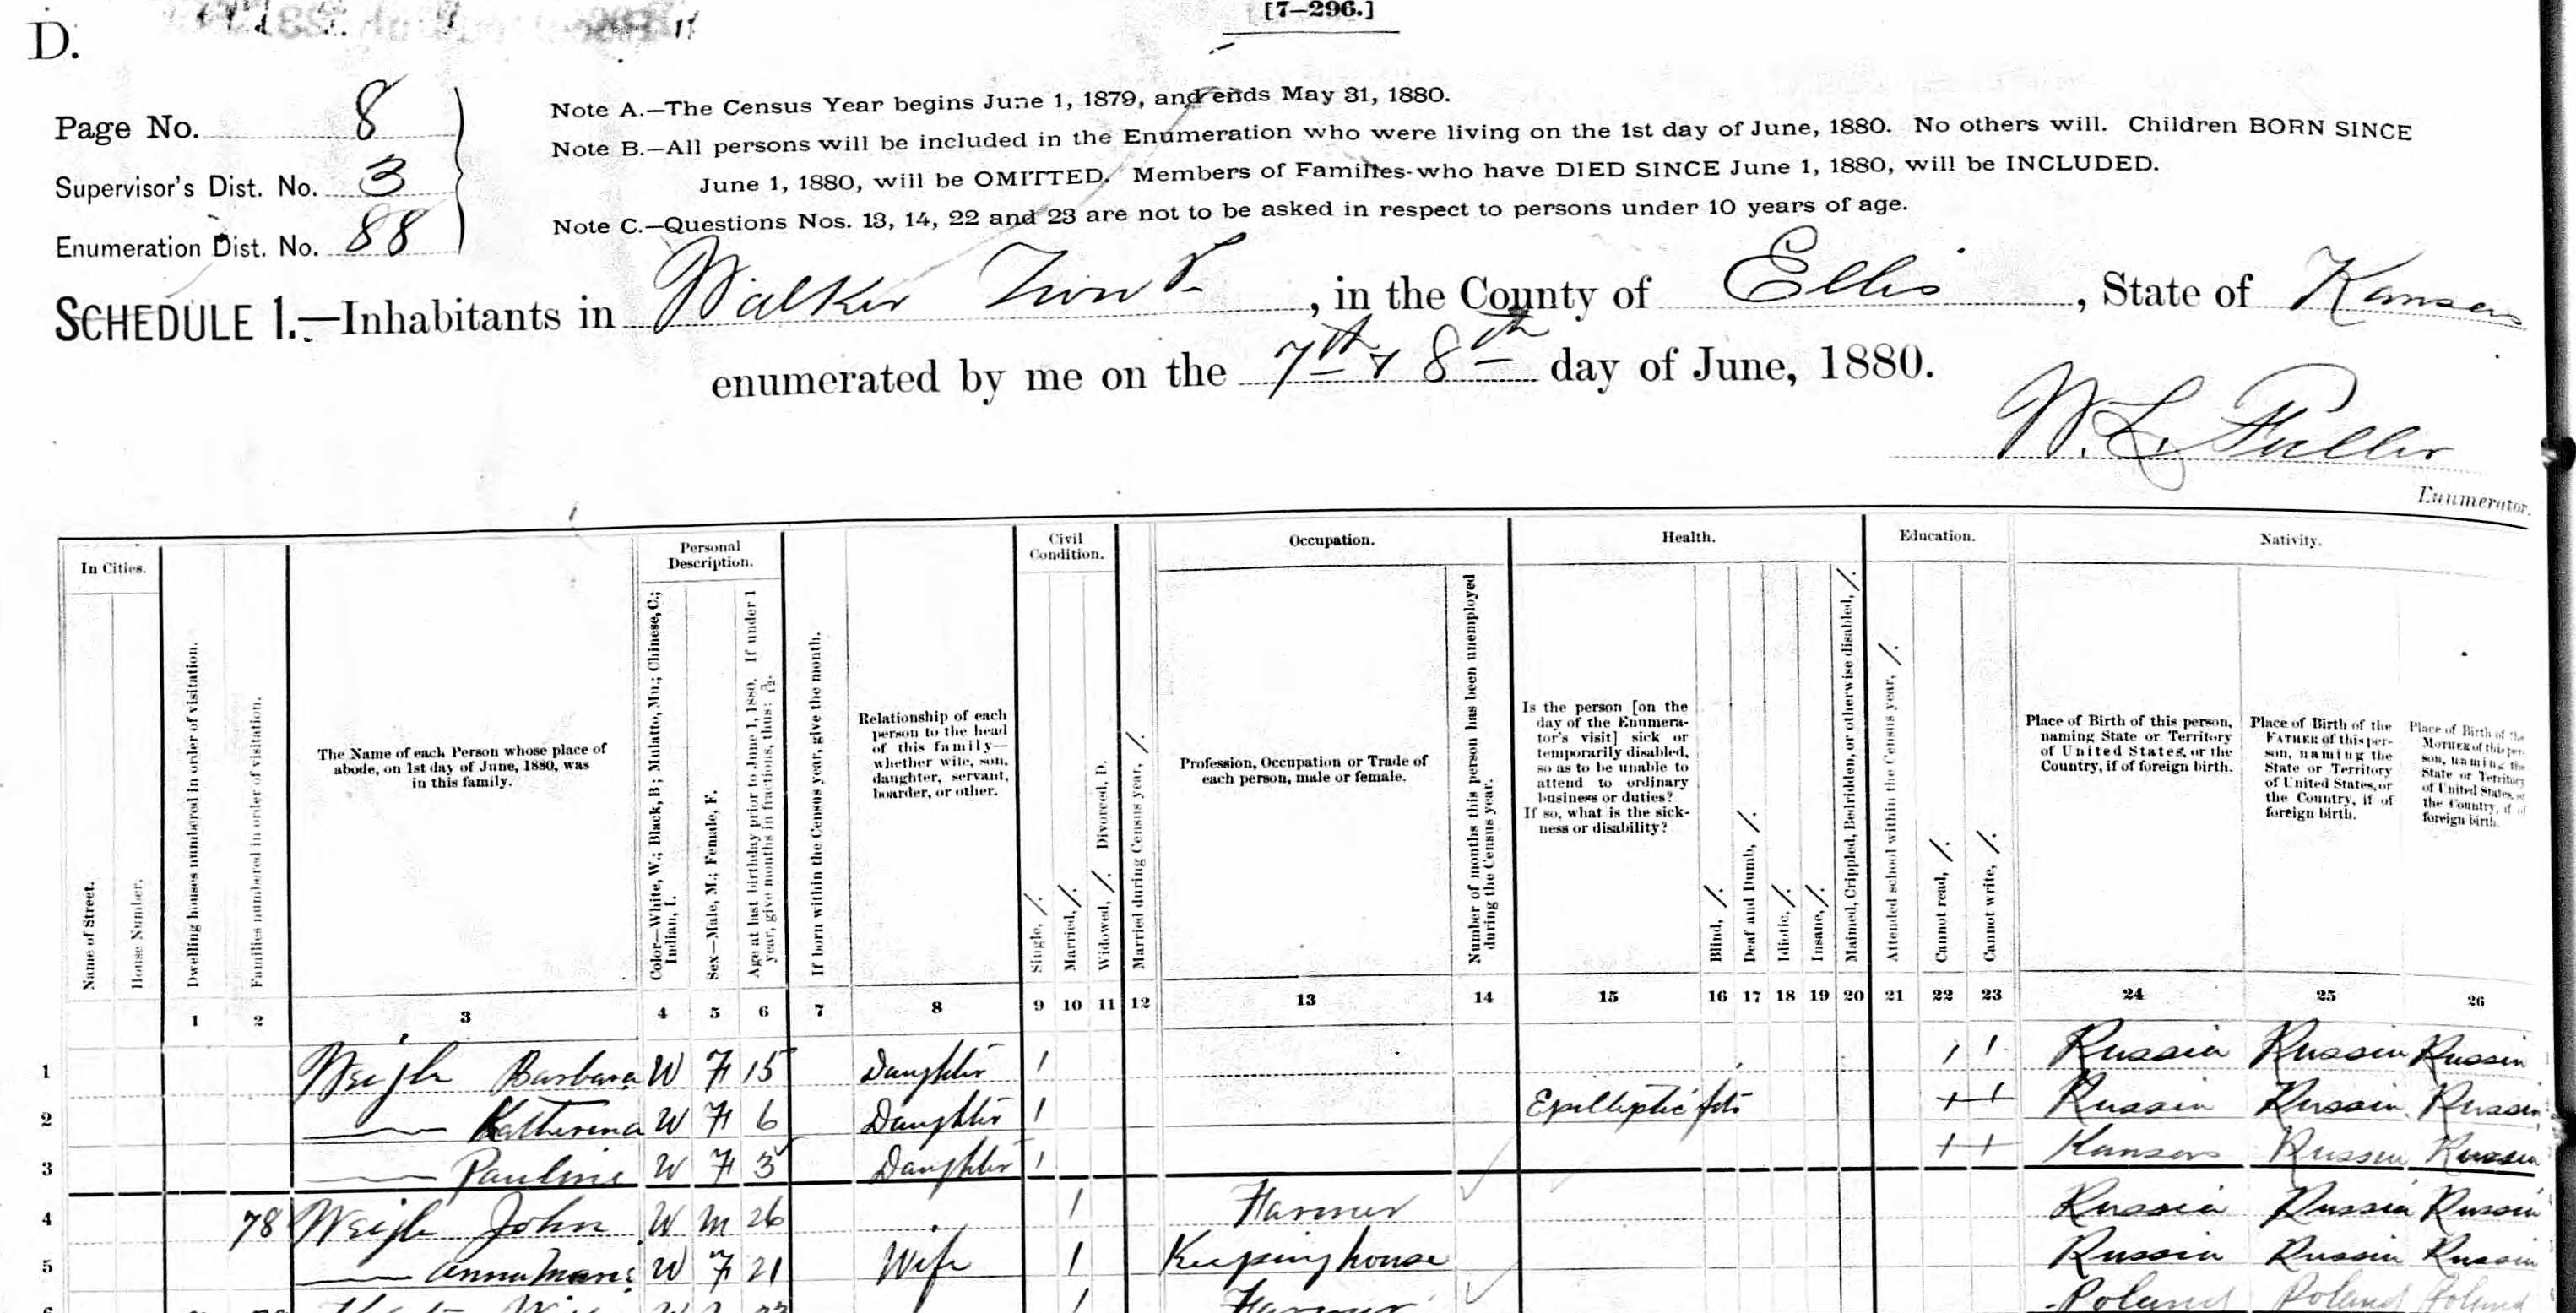 D.
[7–296.]
Page No. 8
Supervisor's Dist. No. 3
Enumeration Dist. No. 88
Note A.—The Census Year begins June 1, 1879, and ends May 31, 1880.
Note B.—All persons will be included in the Enumeration who were living on the 1st day of June, 1880. No others will. Children BORN SINCE
June 1, 1880, will be OMITTED. Members of Families who have DIED SINCE June 1, 1880, will be INCLUDED.
Note C.—Questions Nos. 13, 14, 22 and 23 are not to be asked in respect to persons under 10 years of age.
SCHEDULE 1.—Inhabitants in Walker, in the County of Ellis, State of Kansas
enumerated by me on the 7th & 8th day of June, 1880.
W. L. Fuller
Enumerator.
In Cities.
Name of Street.
House Number.
Dwelling houses numbered in order of visitation.
Families numbered in order of visitation.
The Name of each Person whose place of
abode, on 1st day of June, 1880, was
in this family.
Personal
Description.
Color—White, W.; Black, B; Mulato, Mu.; Chinese, C.;
Indian, I.
Sex—Male, M.; Female, F.
Age at last birthday prior to June 1, 1880. If under 1
year, give months in fractions, thus: 3/12.
If born within the Census year, give the month.
Relationship of each
person to the head
of this family—
whether wife, son,
daughter, servant,
boarder, or other.
Civil
Condition.
Single, /.
Married, /.
Widowed, /. Divorced, D.
Married during Census year, /.
Occupation.
Profession, Occupation or Trade of
each person, male or female.
Number of months this person has been unemployed
during the Census year.
Health.
Is the person [on the
day of the Enumera-
tor's visit] sick or
temporarily disabled,
so as to be unable to
attend to ordinary
business or duties?
If so, what is the sick-
ness or disability?
Blind, /.
Deaf and Dumb, /.
Idiotic, /.
Insane, /.
Maimed, Crippled, Bedridden, or otherwise disabled, /.
Education.
Attended school within the Census year, /.
Cannot read, /.
Cannot write, /.
Nativity.
Place of Birth of this person,
naming State or Territory
of United States, or the
Country, if of foreign birth.
Place of Birth of the
FATHER of this per-
son, naming the
State or Territory
of United States, or
the Country, if of
foreign birth.
Place of Birth of the
MOTHER of this per-
son, naming the
State or Territory
of United States, or
the Country, if of
foreign birth.
1 2 3 4 5 6 7 8 9 10 11 12 13 14 15 16 17 18 19 20 21 22 23 24 25 26
1 Weigle Barbara W F 15 Daughter / / / Russia Russia Russia
2 —— Katherina W F 6 Daughter / Epilleptic fits + + Russia Russia Russia
3 —— Pauline W F 3 Daughter / + + Kansas Russia Russia
4 78 Weigle John W M 26 / Farmer Russia Russia Russia
5 —— W F 21 Wife / Keeping house Russia Russia Russia
Farmer Poland Poland Poland